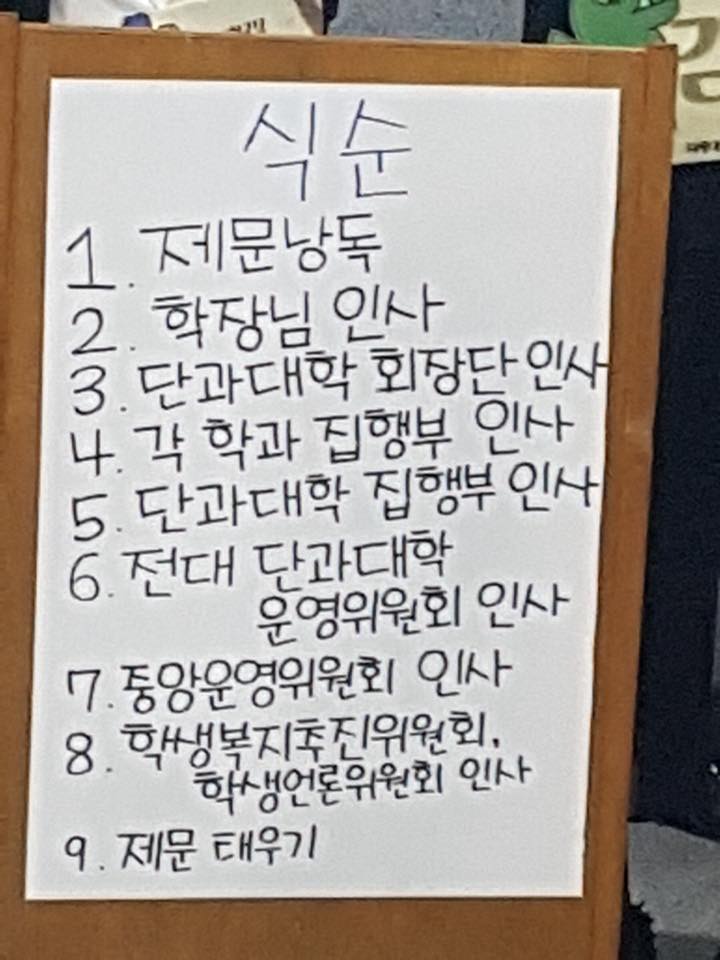 식순
1. 제문낭독
2. 학장님 인사
3. 단과대학 회장단 인사
4. 각 학과 집행부 인사
5. 단과대학 집행부 인사
6. 전대 단과대학
운영위원회 인사
7. 중앙운영위원회 인사
8. 학생복지추진위원회,
학생언론위원회 인사
9. 제문 태우기